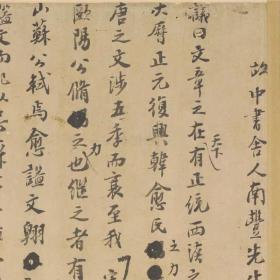 故中書舍人南豐先生
議曰文章之在天下有正統西漢之
大曆正元復興韓愈氏之力
唐之文涉五季而衰至我
歐陽公脩之力也繼之者有
山蘇公軾焉愈謚文翱
謚文而